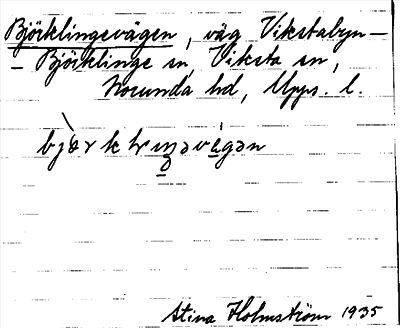 Björklingevägen, väg Vikstabyn –
– Björklinge sn, Viksta sn,
Norunda hd, Upps. l.
Stina Holmström 1935